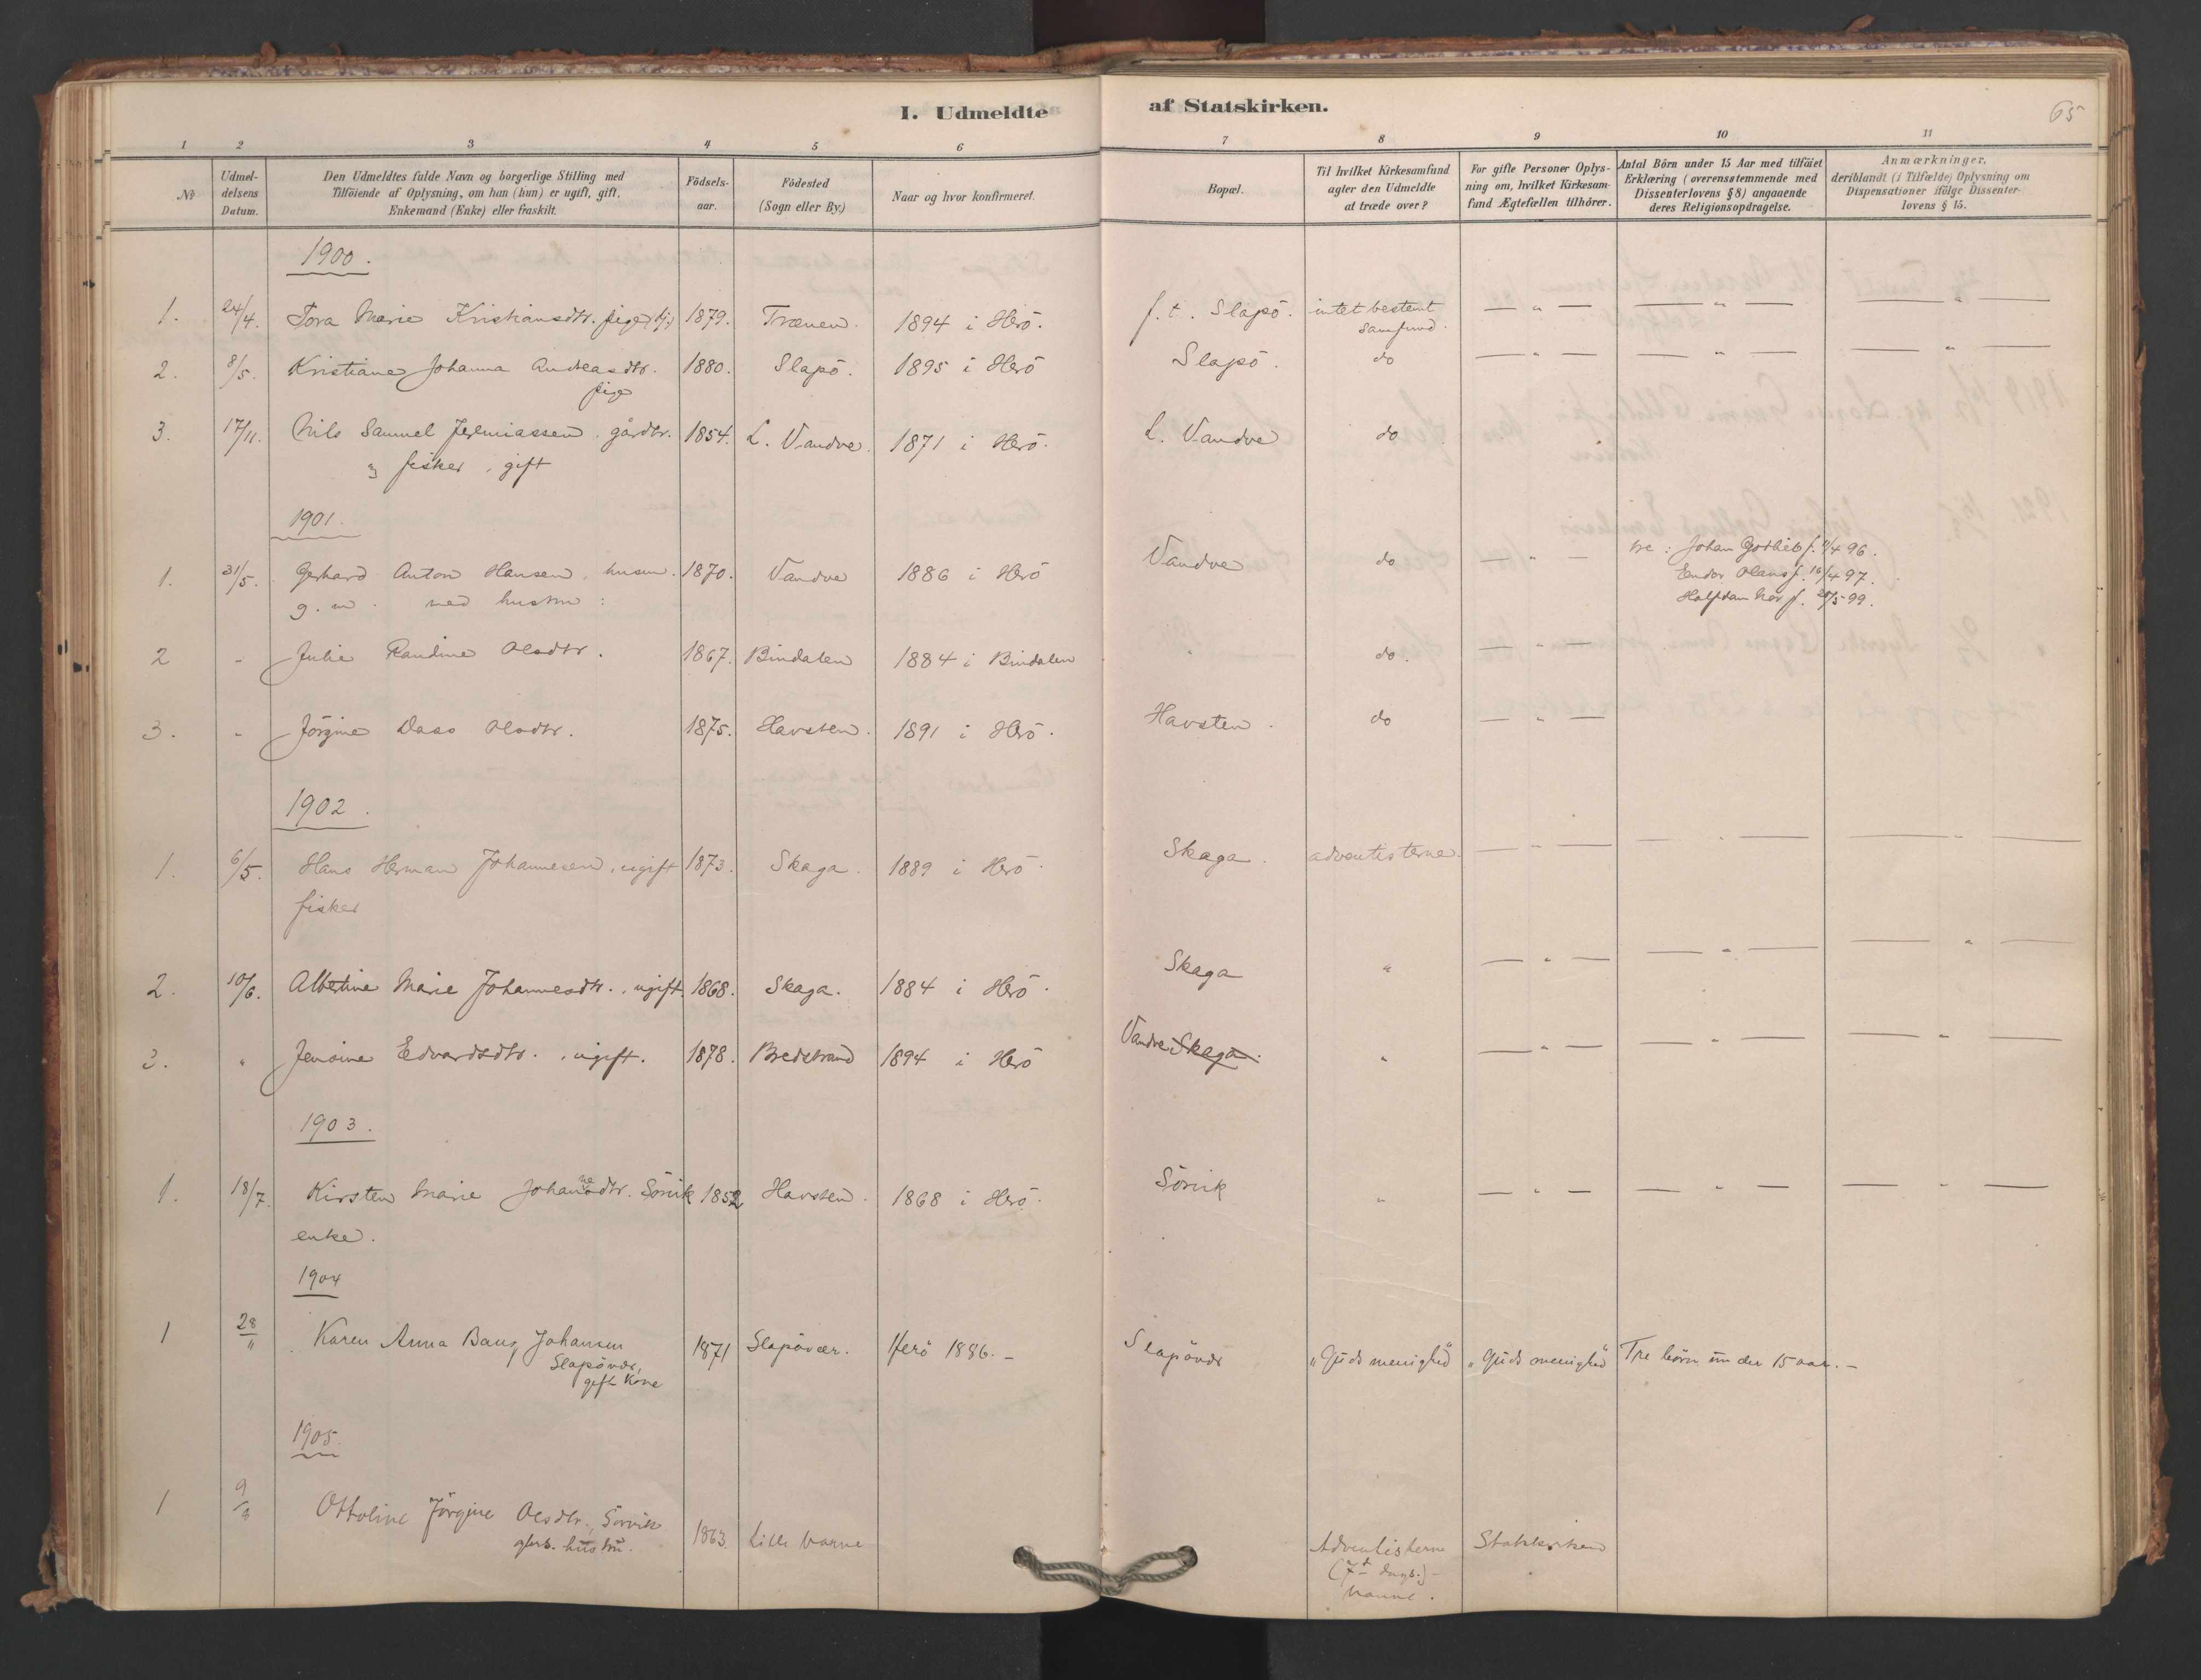 I. Udmeldte af Statskirken.
65
1 2 3 4 5 6 7 8 9 10 11
No
Udmeldelsens Datum.
Den Udmeldtes fulde Navn og borgerlige Stilling med
Tilföiende af Oplysning, om han (hun) er ugift, gift,
Enkemand (Enke) eller fraskilt.
Födselsaar.
Födested
(Sogn eller By.)
Naar og hvor konfirmeret.
Bopæl.
Til hvilket Kirkesamfund
agter den Udmeldte
at træde over?
For gifte Personer Oplys-
ning om, hvilket Kirkesam-
fund Ægtefællen tilhörer.
Antal Börn under 15 Aar med tilföiet
Erklæring (overensstemmende med
Dissenterlovens § 8) angaaende
deres Religionsopdragelse.
Anmærkninger,
deriblandt (i Tilfælde) Oplysning om
Dispensationer ifölge Dissenter-
lovens § 15.
1900.
1. 24/4. Tora Marie Kristiansdtr. pige 1879. Trænen. 1894 i Herö. f. t. Slapö. intet bestemt — " — — " — — " —
samfund.
2. 8/5. Kristiane Johanna Andreasdtr. 1880. Slapö. 1895 i Herö Slapö. do — " — — " — — " —
pige
3. 17/11. Nils Samuel Jeremiassen, gårdbr. 1854. L. Vandve. 1871 i Herö. L. Vandve do
og fisker, gift
1901.
1. 31/5. Gerhard Anton Hansen, husm. 1870. Vandve 1886 i Herö Vandve do — " — tre: Johan Gothieb f. /4 96.
Endor Olaus f. 16/4 97.
g. m. med hustru:
Halfdan f. 28/5 99.
2 " Julie Randine Olsdtr. 1867. Bindalen 1884 i Bindalen " do. — " —
3. " Jörgine Olsdtr. 1875. Havsten. 1891 i Herö. Havsten. do — " —
1902.
1. 6/5. Hans Herman Johannesen, ugift 1873. Skaga. 1889 i Herö. Skaga. adventisterne. — " — — " — — " —
fisker
2. 10/6. Albertine Marie Johannesdtr., ugift. 1868. Skaga. 1884 i Herö. Skaga " — " — — " — — " —
3. " Jensine Edvardsdtr., ugift. 1878. Bredstrand 1894 i Herö Vandve Skaga. " — " — — " — — " —
1903.
1. 18/7. Kirsten Marie Johannesdtr. Sörvik 1852 Havsten. 1868 i Herö. Sörvik " — " — — " — — " —
enke.
1904
1 28/11 Karen Anna Bang Johansen 1871 Slapövær. Herö 1886. – Slapövær "Guds menighed" "Guds menighed" Tre börn under 15 aar. –
Slapövær,
gift Kone
1905.
1 9/ Ottoline Jörgine Olsdtr., Sörvik 1863. Lille Adventisterne Statskirken
gbrs. hustru.
(7d dags.) –